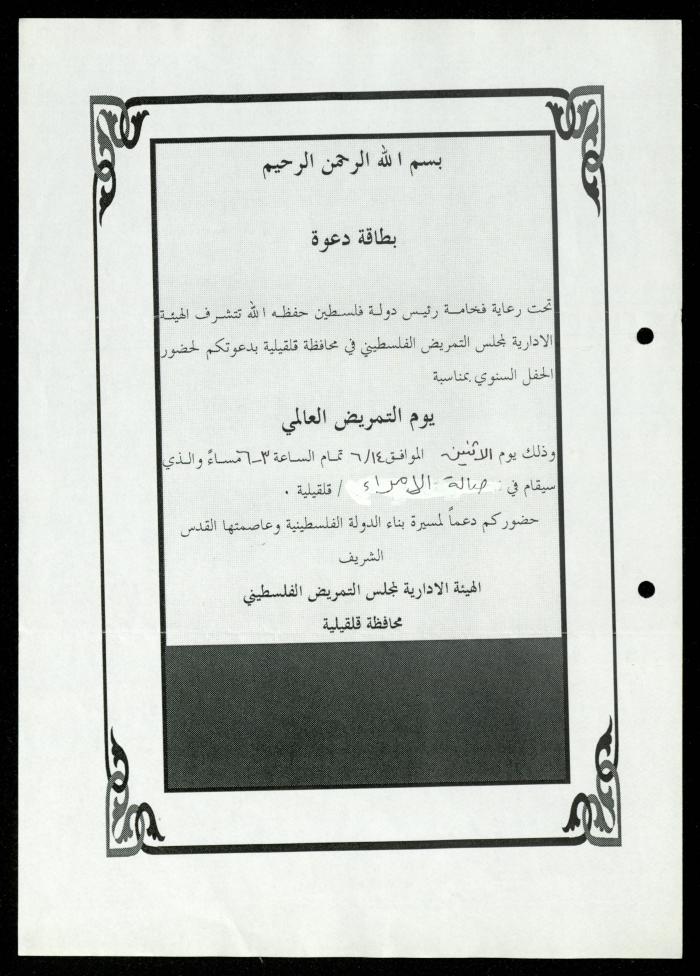 بسم الله الرحمن الرحيم
بطاقة دعوة
تحت رعاية فخامة رئيس دولة فلسطين حفظه الله تتشرف الهيئة
الادارية لمجلس التمريض الفلسطيني في محافظة قلقيلية بدعوتكم لحضور
الحفل السنوي بمناسبة
يوم التمريض العالمي
وذلك يوم الاثنين الموافق ٦/١٤ تمام الساعة ٣-٦ مساءً والذي
سيقام في صالة الامراء / قلقيلية .
حضوركم دعماً لمسيرة بناء الدولة الفلسطينية وعاصمتها القدس
الشريف
الهيئة الادارية لمجلس التمريض الفلسطيني
محافظة قلقيلية